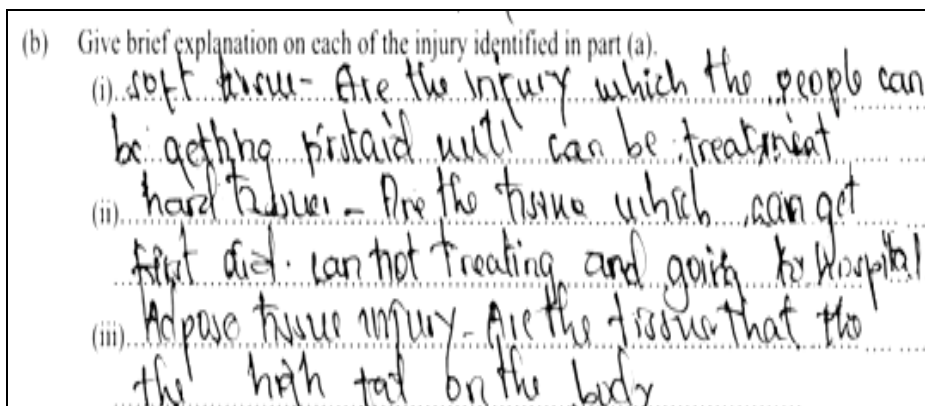 (b) Give brief explanation on each of the injury identified in part (a).
(i) soft tissue - Are the injury which the people can
be getting firstaid will can be treatment
(ii) hard tissues - Are the tissue which can get
first aid. can not treating and going to Hospital
(iii) Adpose tissue injury - Are the tissue that the
the high fat on the body